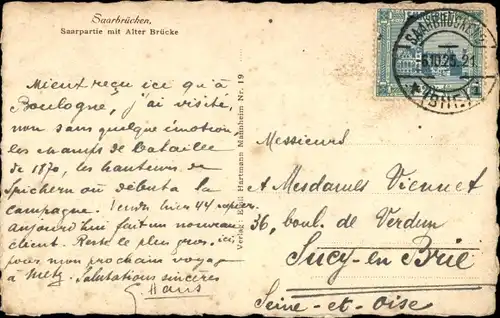 Saarbrücken,
Saarpartie mit Alter Brücke
Mieux reçu ici qu'à
Boulogne, j'ai visité,
non sans quelque émotion,
les champs de bataille
de 1870, les hauteurs de
Spichern où débuta la
campagne. Vendu hier 44
aujourd'hui fait un nouveau
client. Reste le plus gros, ici,
pour mon prochain voyage
à Metz. Salutations sincères
G. Hans
Verlag: Emil Hartmann Mannheim Nr. 19
SAARBRÜCKEN
6.10.25. 21
Messieurs
et Mesdames Viennet
36, boul. de Verdun
Sucy-en-Brie
Seine-et-Oise